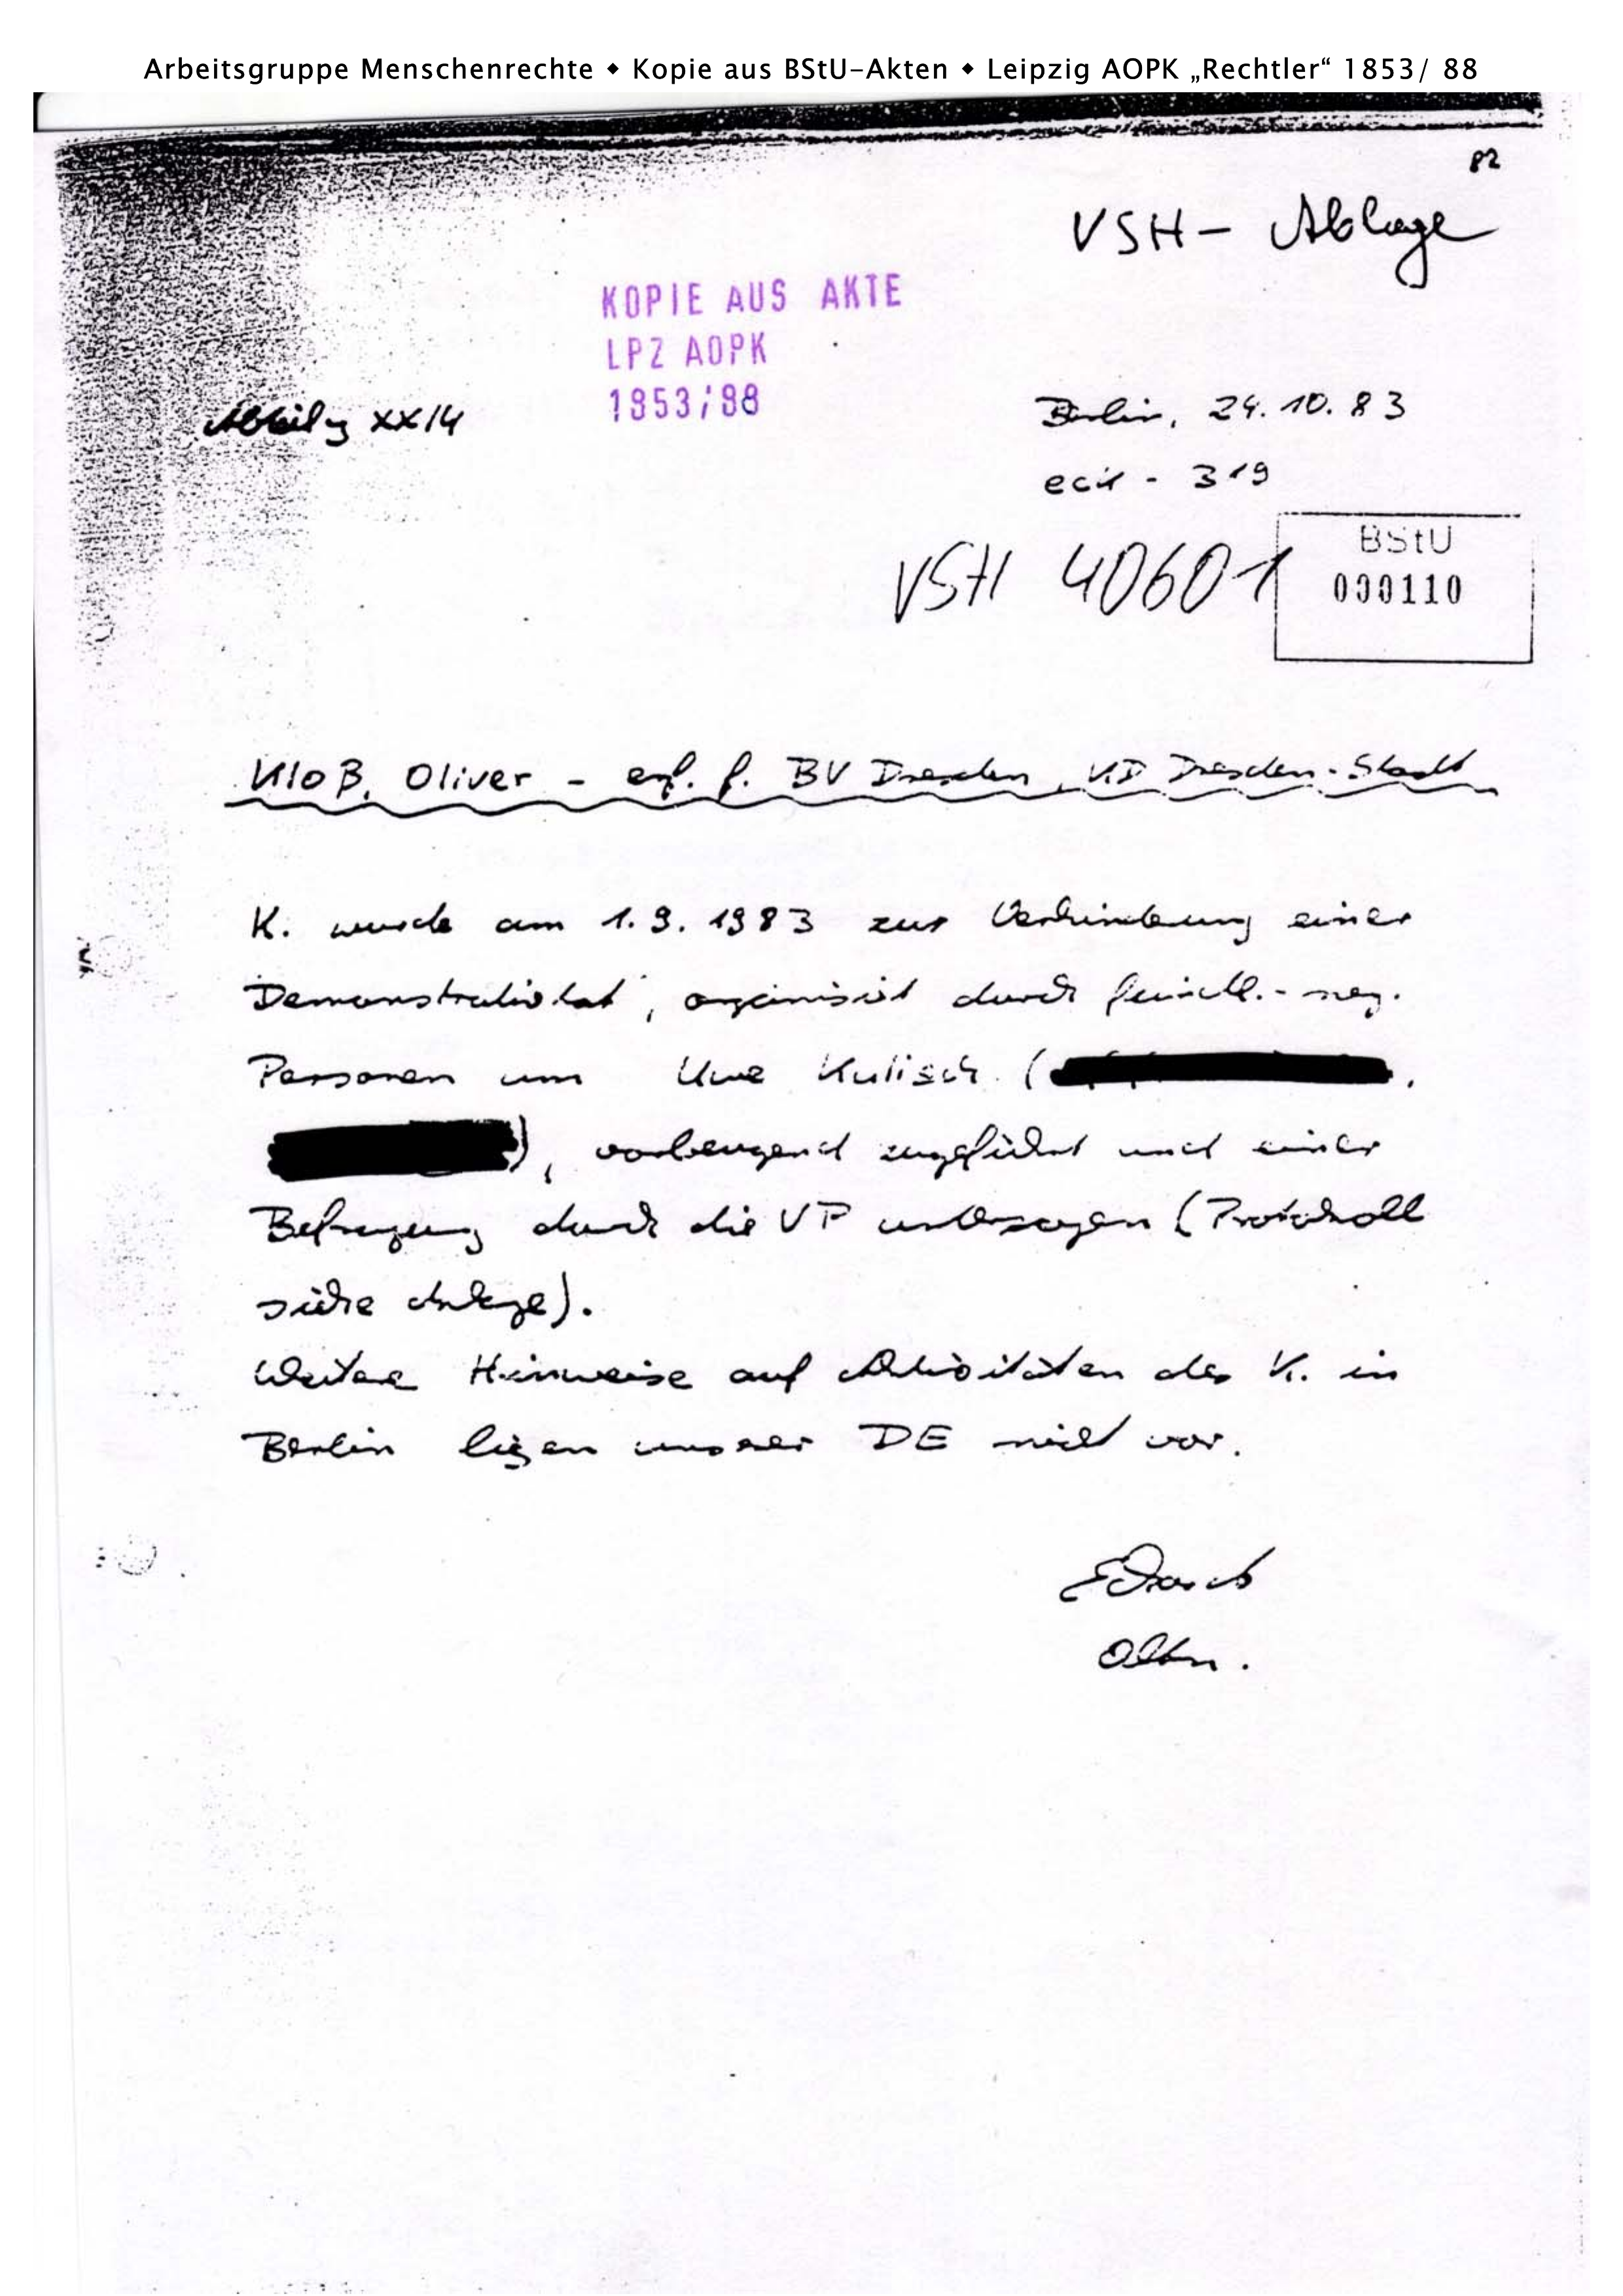 Arbeitsgruppe Menschenrechte ◆ Kopie aus BStU-Akten ◆ Leipzig AOPK „Rechtler“ 1853/ 88
82
VSH - Ablage
KOPIE AUS AKTE
LPZ AOPK
1853/88
Abteilg XX/4
Berlin, 24.10.83
- 319
VSH 40601
BStU
000110
Kloß, Oliver - erf. f. BV Dresden, KD Dresden-Stadt
K. wurde am 1.9.1983 zur Verhinderung einer
Demonstrativtat, organisiert durch feindl.-neg.
Personen um Uwe Kulisch (
), vorbeugend zugeführt und einer
Befragung durch die VP unterzogen (Protokoll
siehe Anlage).
Weitere Hinweise auf Aktivitäten des K. in
Berlin liegen unserer DE nicht vor.
Oltn.